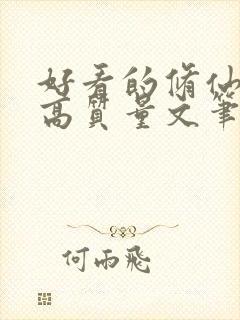 好看的修仙
高质量文筆
何雨飛